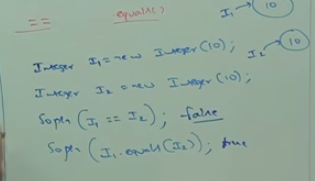 == .equals()
I₁ → 10
Integer I₁ = new Integer(10);
I₂ → 10
Integer I₂ = new Integer(10);
Sopln (I₁ == I₂); false
Sopln (I₁.equals(I₂)); true